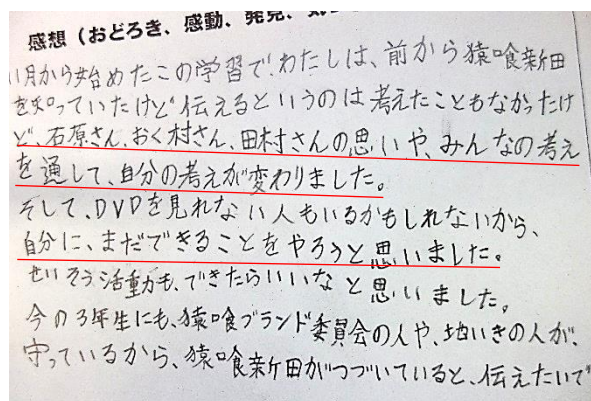 感想（おどろき、感動、発見、
11月から始めたこの学習で、わたしは、前から猿喰新田
を知っていたけど伝えるというのは考えたこともなかったけ
ど、石原さん、おく村さん、田村さんの思いや、みんなの考え
を通して、自分の考えが変わりました。
そして、DVDを見れない人もいるかもしれないから、
自分に、まだできることをやろうと思いました。
せいそう活動も、できたらいいなと思いました。
今の3年生にも、猿喰ブランド委員会の人や、地いきの人が、
守っているから、猿喰新田がつづいていると、伝えたいで